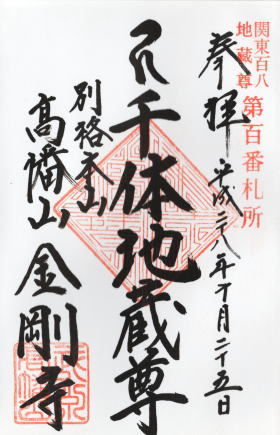 関東百八
地蔵尊
第百番札所
奉拝
平成二八年十月二十五日
千体地蔵尊
別格本山
髙幡山
金剛寺